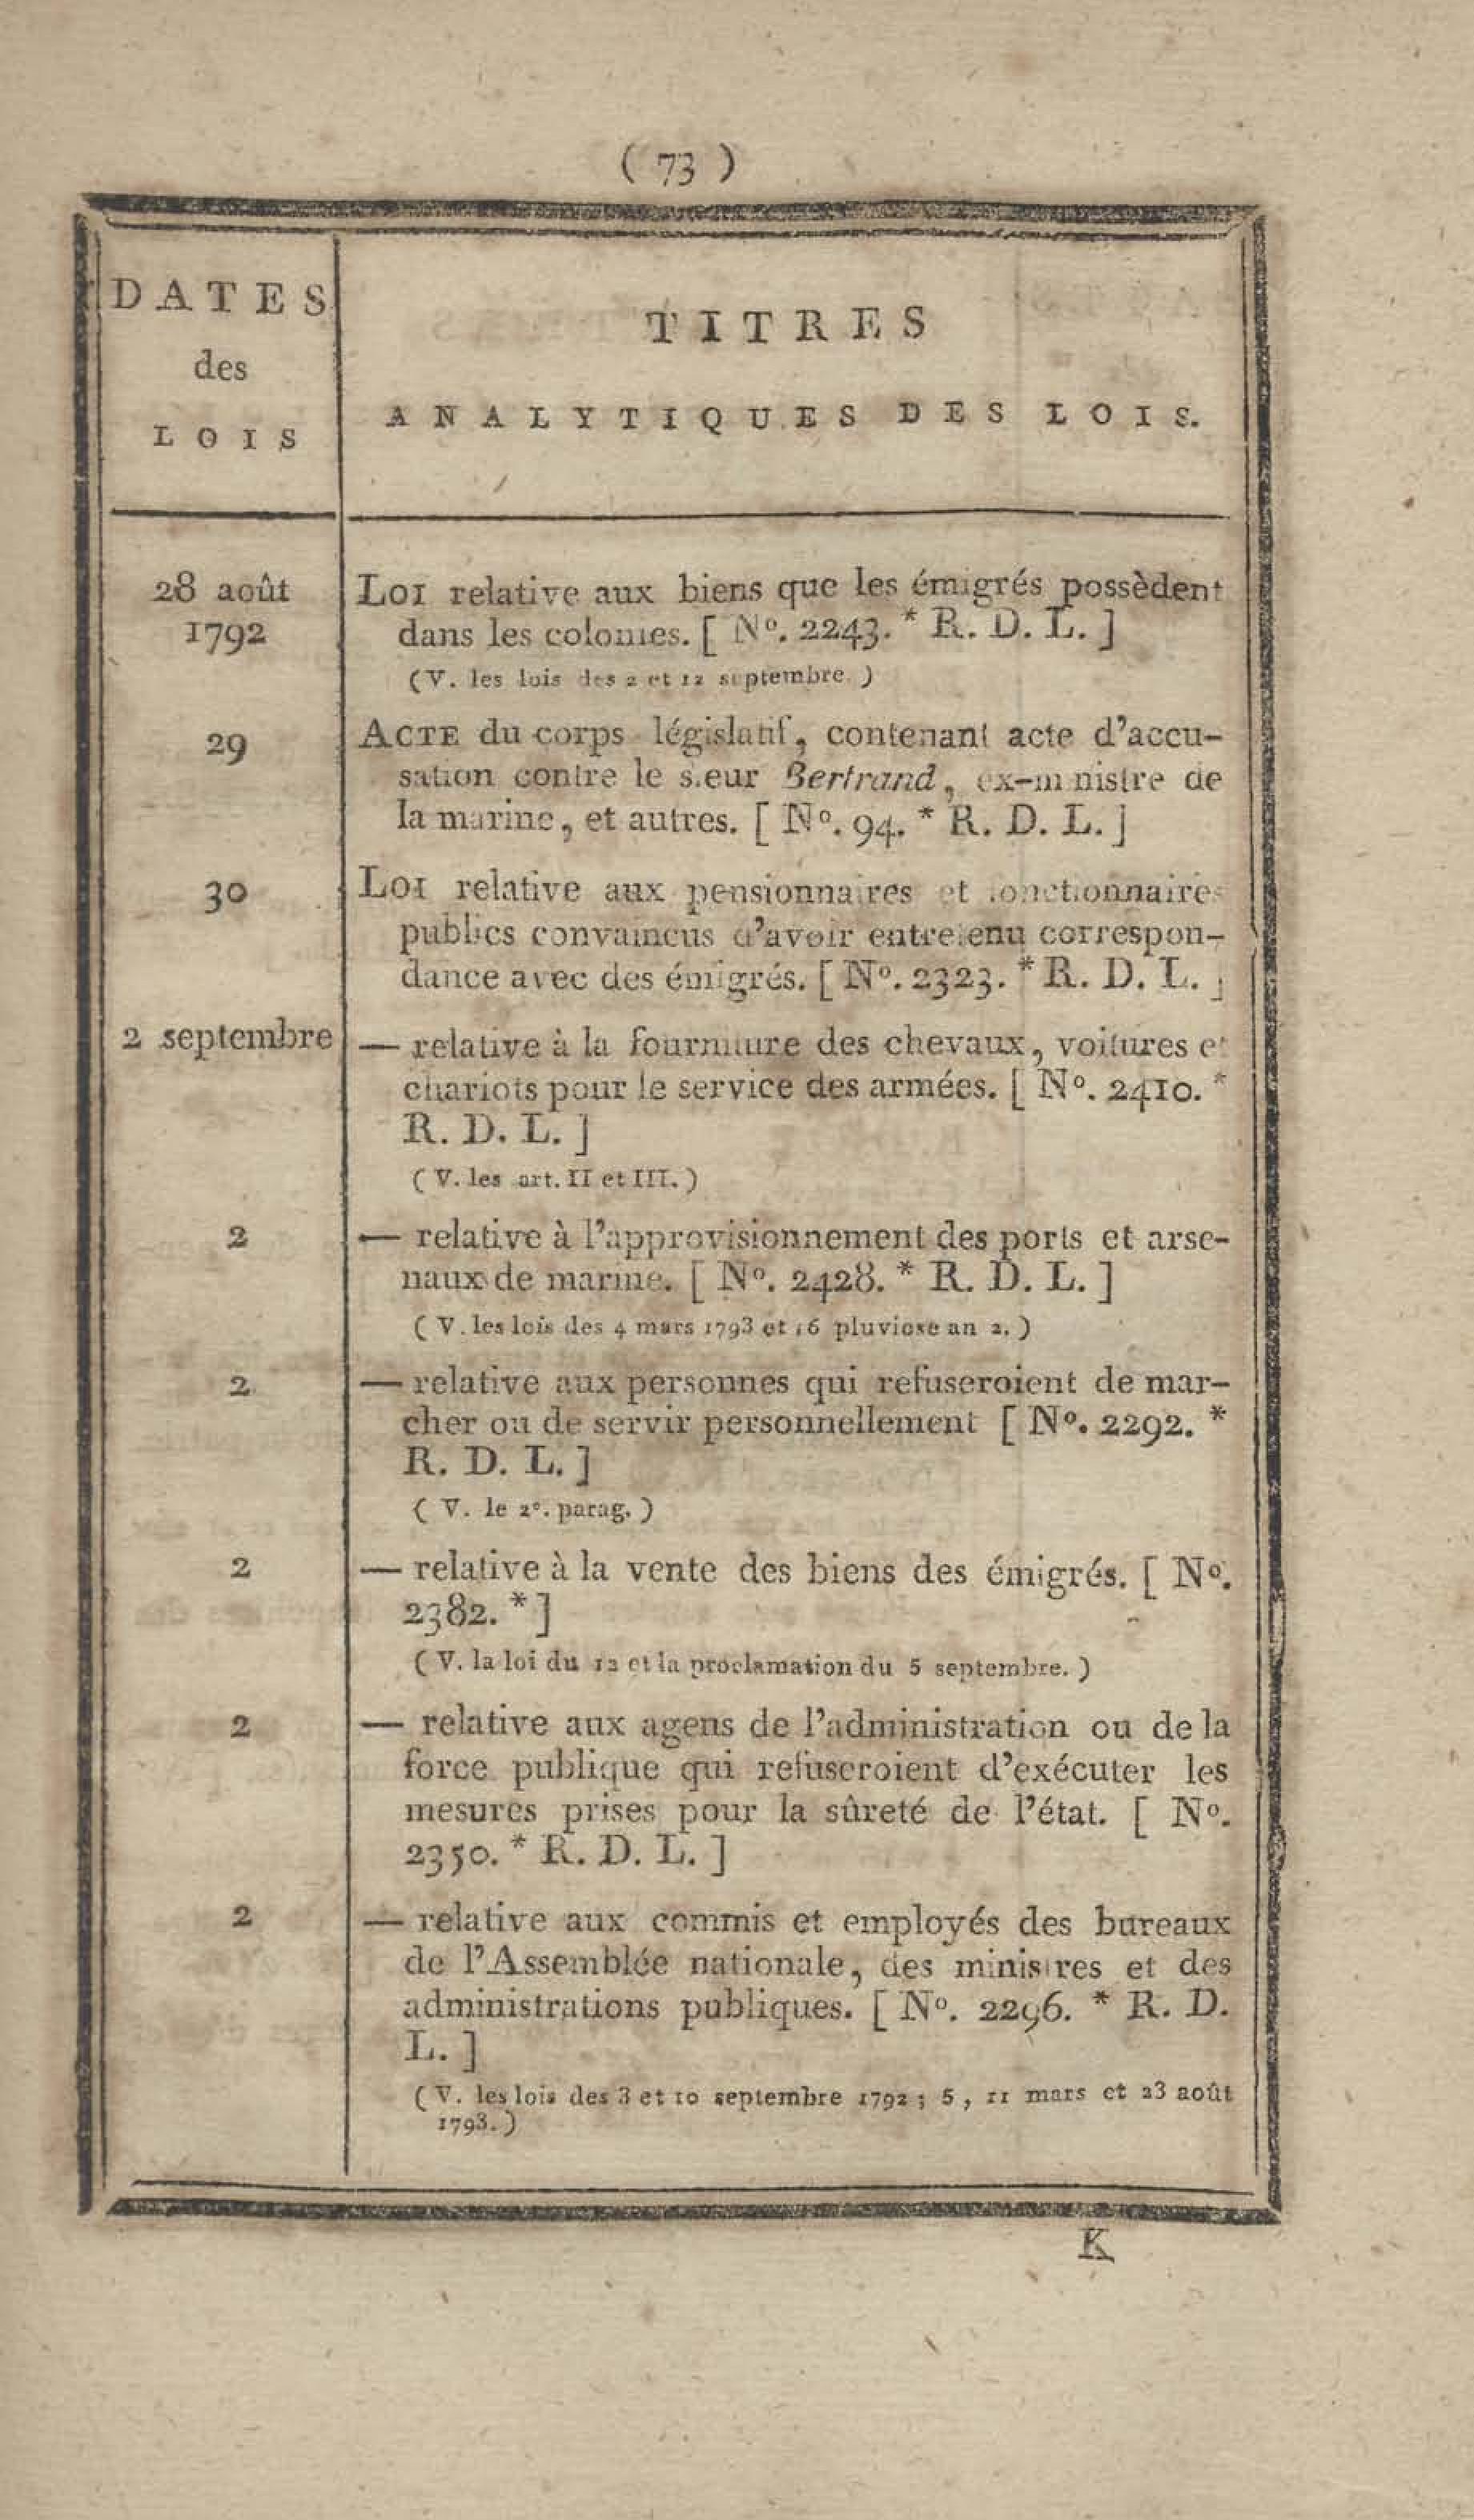 ( 73 )
DATES
des
LOIS
TITRES
ANALYTIQUES DES LOIS.
28 août
1792
LOI relative aux biens que les émigrés possèdent
dans les colonies. [ Nº. 2243. * R. D. L. ]
(V. les lois des 2 et 12 septembre. )
29
ACTE du corps législatif, contenant acte d'accu-
sation contre le sieur Bertrand, ex-ministre de
la marine, et autres. [ Nº. 94. * R. D. L. ]
30
LOI relative aux pensionnaires et fonctionnaires
publics convaincus d'avoir entretenu correspon-
dance avec des émigrés. [ Nº. 2323. * R. D. L. ]
2 septembre
— relative à la fourniture des chevaux, voitures et
chariots pour le service des armées. [ Nº. 2410. *
R. D. L. ]
( V. les art. II et III. )
2
— relative à l'approvisionnement des ports et arse-
naux de marine. [ Nº. 2428. * R. D. L. ]
( V. les lois des 4 mars 1793 et 16 pluviose an 2. )
2
— relative aux personnes qui refuseroient de mar-
cher ou de servir personnellement [ Nº. 2292. *
R. D. L. ]
( V. le 2e. parag. )
2
— relative à la vente des biens des émigrés. [ Nº.
2382. * ]
( V. la loi du 12 et la proclamation du 5 septembre. )
2
— relative aux agens de l'administration ou de la
force publique qui refuseroient d'exécuter les
mesures prises pour la sûreté de l'état. [ Nº.
2350. * R. D. L. ]
2
— relative aux commis et employés des bureaux
de l'Assemblée nationale, des ministres et des
administrations publiques. [ Nº. 2296. * R. D.
L. ]
( V. les lois des 3 et 10 septembre 1792 ; 5, 11 mars et 23 août
1793. )
K